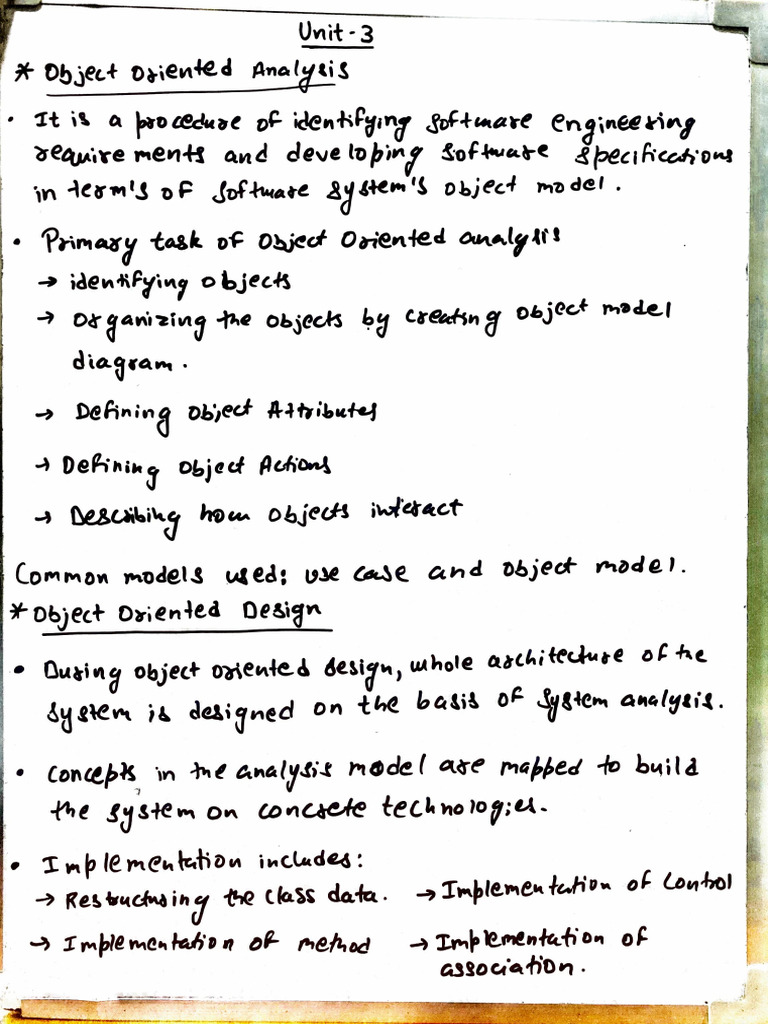 Unit-3
* Object Oriented Analysis
• It is a procedure of identifying software engineering
requirements and developing software specifications
in term's of software system's object model.
• Primary task of Object Oriented analysis
→ identifying objects
→ Organizing the objects by creating object model
diagram.
→ Defining Object Attributes
→ Defining Object Actions
→ Describing how objects interact
Common models used: use case and object model.
* Object Oriented Design
• During object oriented design, whole architecture of the
system is designed on the basis of system analysis.
• Concepts in the analysis model are mapped to build
the system on concrete technologies.
• Implementation includes:
→ Restructuring the class data. → Implementation of Control
→ Implementation of method → Implementation of
association.